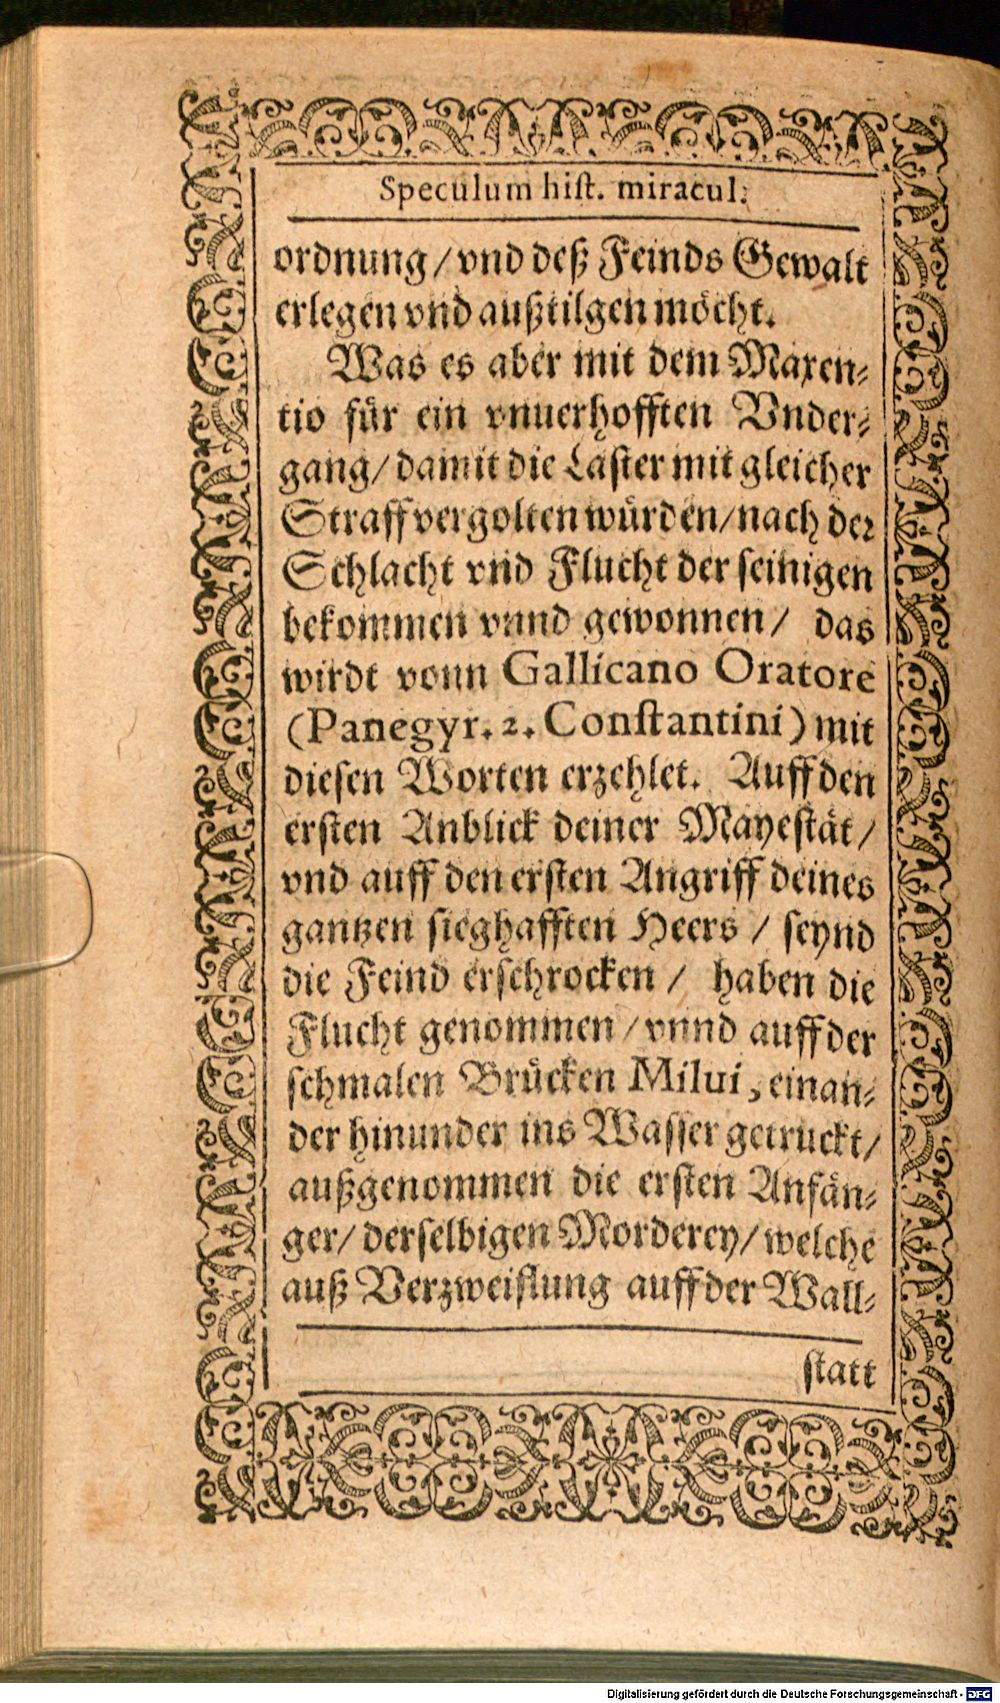 Speculum hist. miracul.
ordnung / vnd deß Feinds Gewalt
erlegen vnd außtilgen möcht.
Was es aber mit dem Maxen-
tio für ein vnuerhofften Vnder-
gang / damit die Laster mit gleicher
Straff vergolten würden / nach der
Schlacht vnd Flucht der seinigen
bekommen vnnd gewonnen / das
wirdt vonn Gallicano Oratore
(Panegyr. 2. Constantini) mit
diesen Worten erzehlet. Auff den
ersten Anblick deiner Mayestät /
vnd auff den ersten Angriff deines
gantzen sieghafften Heers / seynd
die Feind erschrocken / haben die
Flucht genommen / vnnd auff der
schmalen Brücken Milui, einan-
der hinunder ins Wasser getruckt /
außgenommen die ersten Anfän-
ger / derselbigen Morderey / welche
auß Verzweiflung auff der Wall-
statt
Digitalisierung gefördert durch die Deutsche Forschungsgemeinschaft - DFG